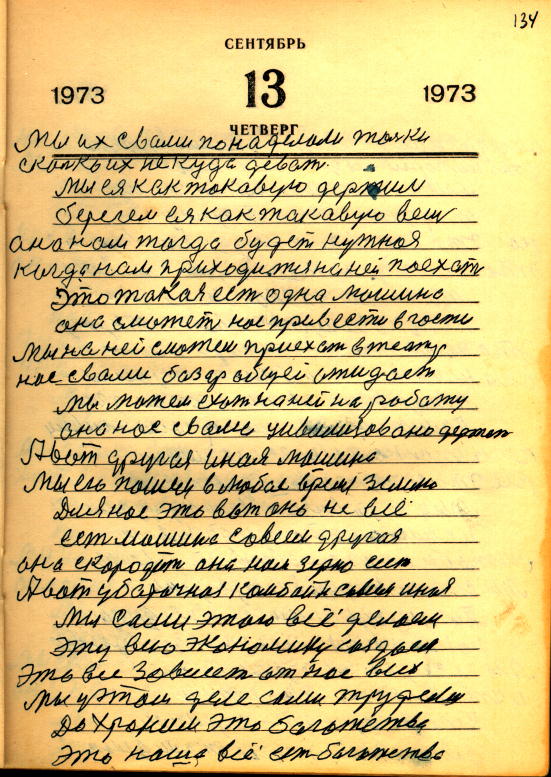 134
СЕНТЯБРЬ
1973 13 1973
ЧЕТВЕРГ
Мы их свами понаделали таки
сколко их не куда деват.
Мы ея как такавую держим
берегем ея как такавую вещ
ана нам тогда будет нужная
когда нам приходится на ней поехать
Это такая ест одна машина
она сможет нас привести в гости
Мы на ней сможем приехат в театр
нас свами базар общей ожидает
Мы можем ехат на ней на работу
она нас свами цивилизовано держит
А вот другая иная машина
Мы ею пашем в любое время землю
Для нас это вот оно не всё
ест машина совсем другая
она скородит она нам зерно сеет
А вот уборачная камбайн савсем иная
Мы сами этаго всё делаем
Эту всю экономику создаем
Это все зависет от нас всех
Мы у этом деле сами трудемся
Да храним это багатства
Это наша всё ест багатство